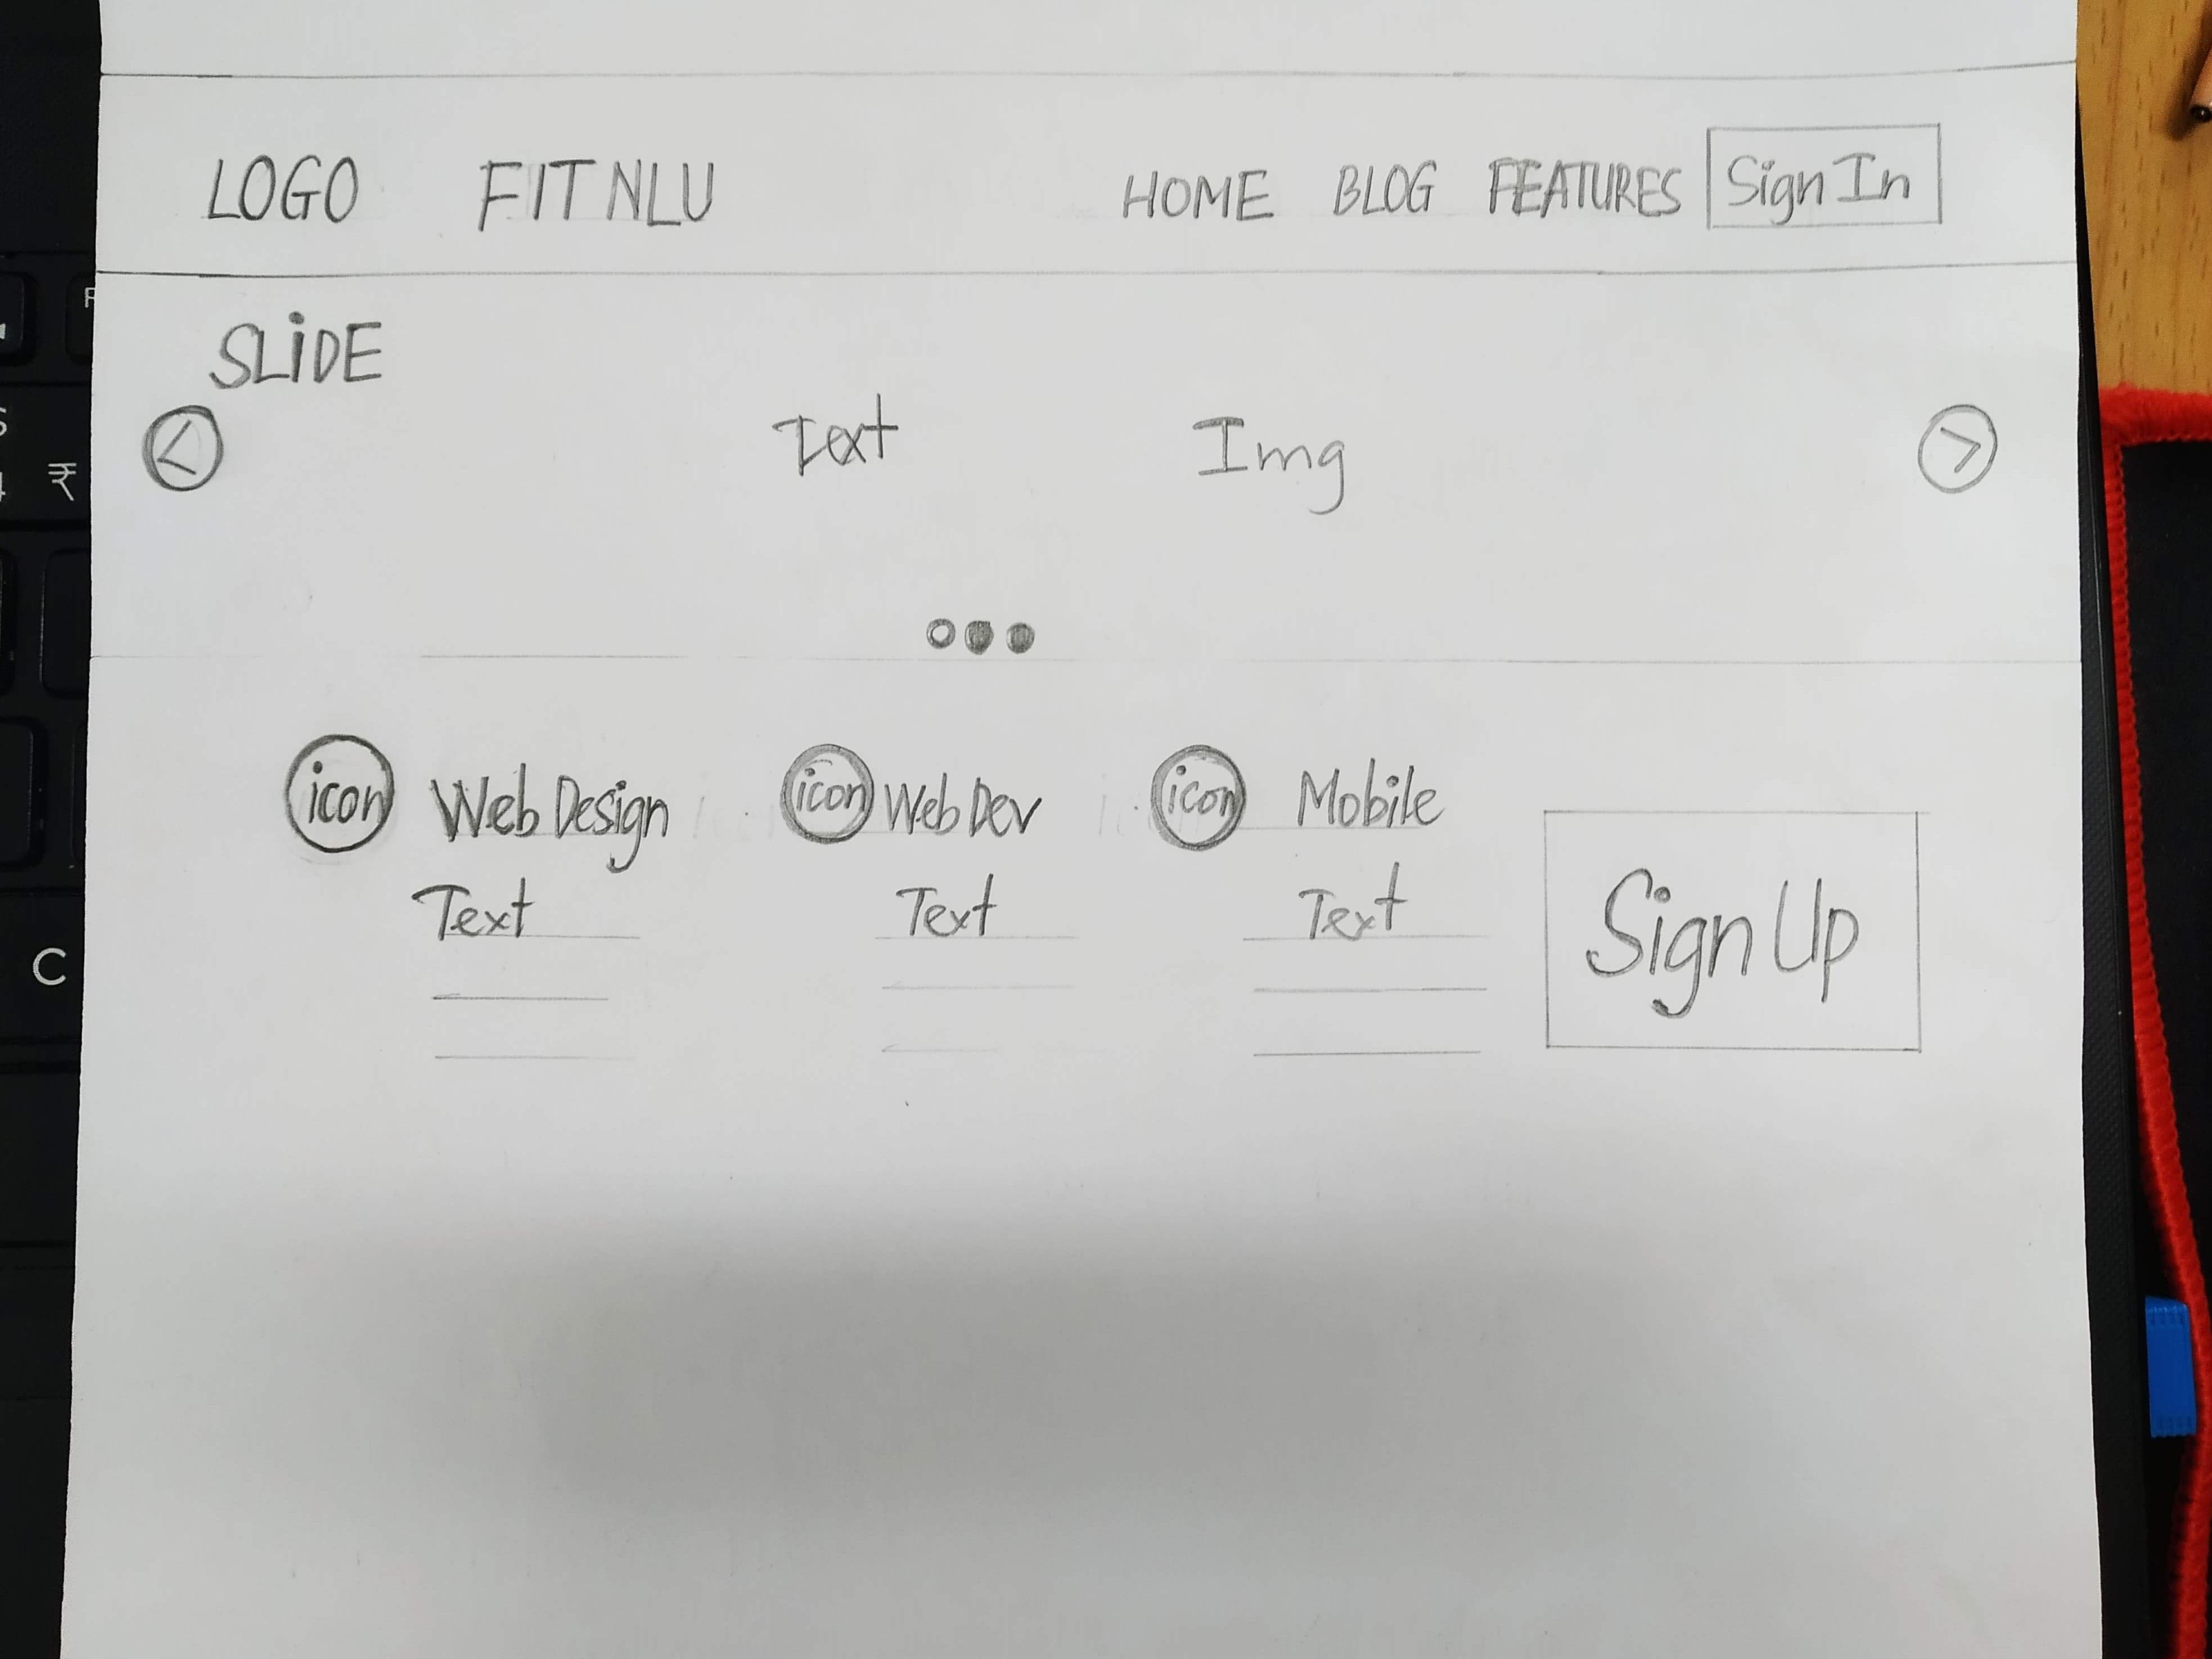 LOGO FIT NLU HOME BLOG FEATURES Sign In
SLiDE
< Text Img >
icon Web Design icon Web Dev icon Mobile
Text Text Text Sign Up
₹
C